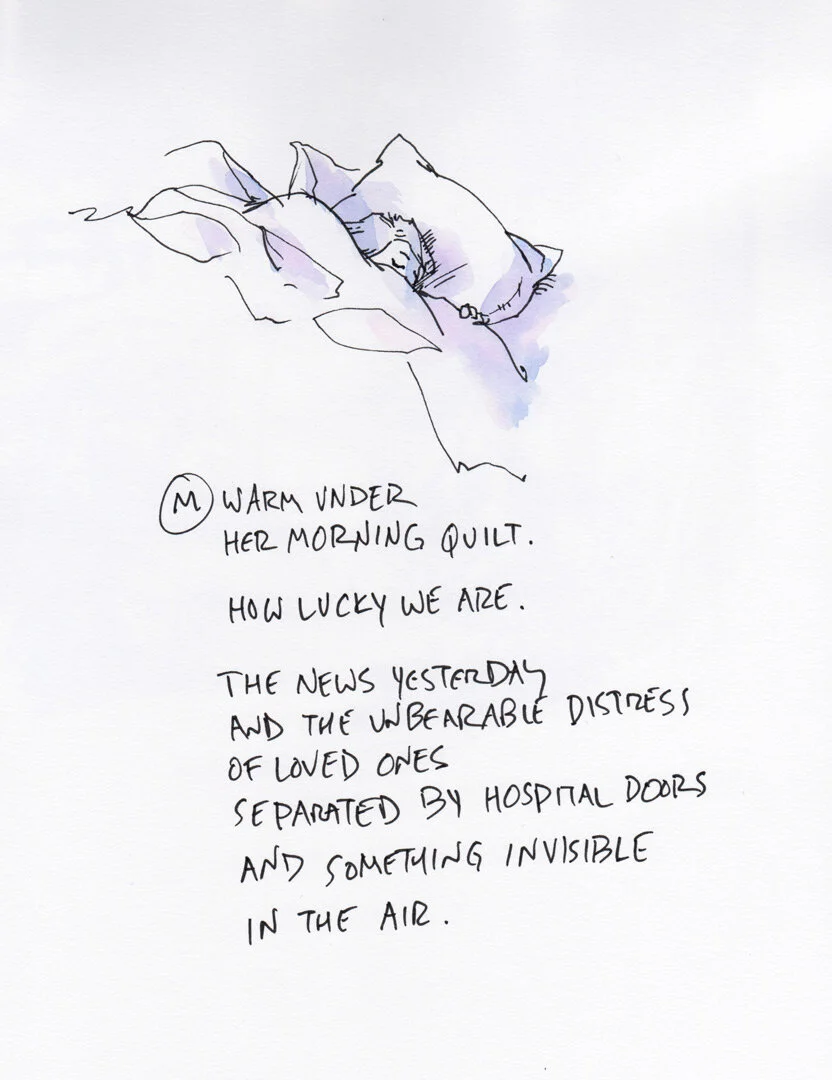 M WARM UNDER
HER MORNING QUILT.
HOW LUCKY WE ARE.
THE NEWS YESTERDAY
AND THE UNBEARABLE DISTRESS
OF LOVED ONES
SEPARATED BY HOSPITAL DOORS
AND SOMETHING INVISIBLE
IN THE AIR.